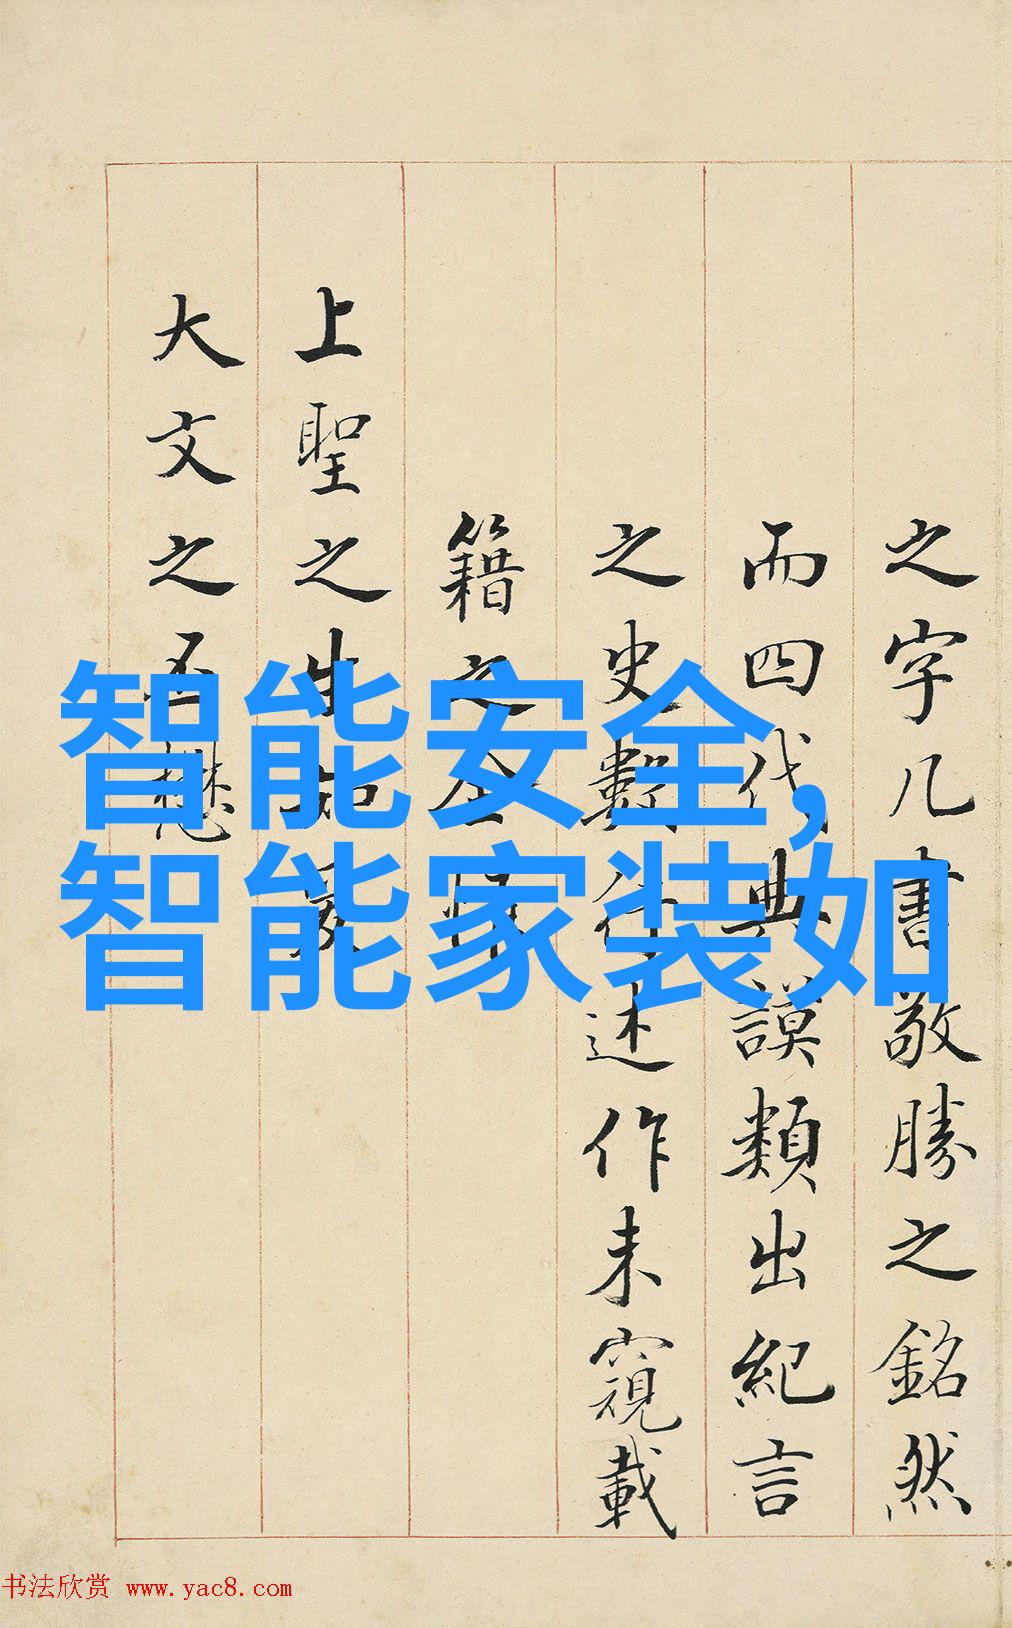 之字几書敬勝之銘然
而四代典謨類出紀言
之史述作未窺載
籍之全惟
上聖之生知爰
大文之丕懋
智能安全,
智能家装如
书法欣赏 www.yac8.com